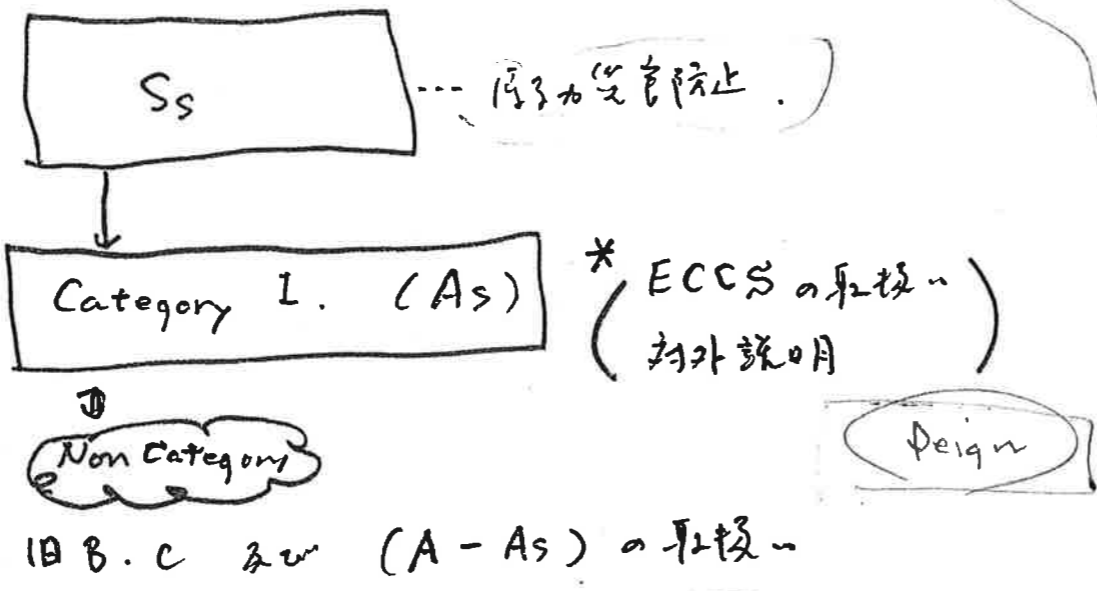 Ss … 原子力災害防止.
Category I. (As)
* (ECCSの取扱い
対外説明)
Non Category
Deign
旧B.C 及び (A-As)の取扱い